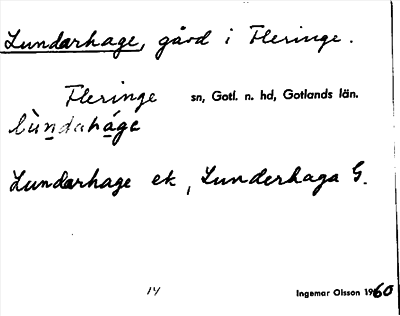 Lundarhage, gård i Fleringe.
Fleringe sn, Gotl. n. hd, Gotlands län.
lùndahágε
Lundarhage ek, Lunderhaga G.
14 Ingemar Olsson 1960